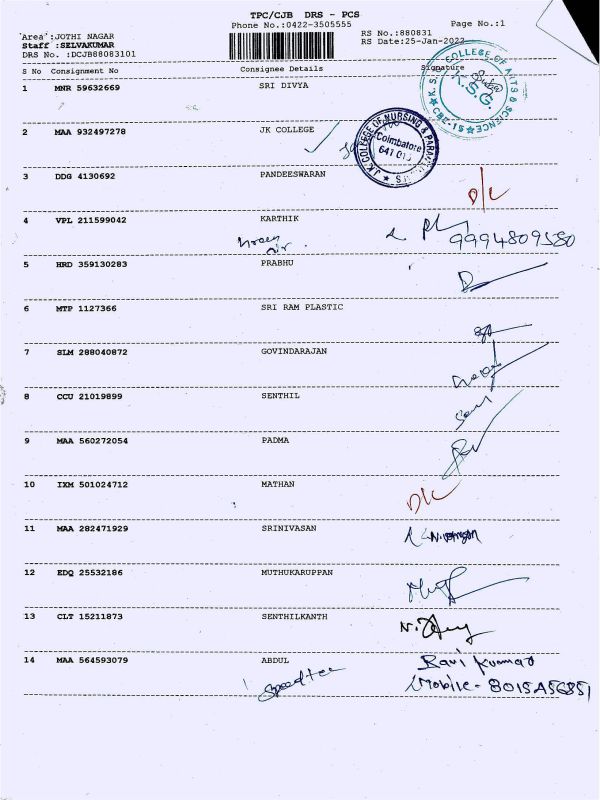 TPC/CJB DRS - PCS
Phone No.:0422-3505555
Page No.:1
Area :JOTHI NAGAR
RS No.:880831
Staff :SELVAKUMAR
RS Date:25-Jan-2022
DRS No. :DCJB88083101
S No Consignment No Consignee Details Signature
1 MNR 59632669 SRI DIVYA
K.S.G. COLLEGE OF ARTS & SCIENCE
K.S.G.
CBE-15
2 MAA 932497278 JK COLLEGE
J.K. COLLEGE OF NURSING &
Coimbatore
3 DDG 4130692 PANDEESWARAN
D/L
4 VPL 211599042 KARTHIK
9994809580
5 HRD 359130283 PRABHU
6 MTP 1127366 SRI RAM PLASTIC
7 SLM 288040872 GOVINDARAJAN
8 CCU 21019899 SENTHIL
9 MAA 560272054 PADMA
10 IXM 501024712 MATHAN
D/L
11 MAA 282471929 SRINIVASAN
12 EDQ 25532186 MUTHUKARUPPAN
13 CLT 15211873 SENTHILKANTH
14 MAA 564593079 ABDUL
Ravi Kumar
Mobile - 8015456851